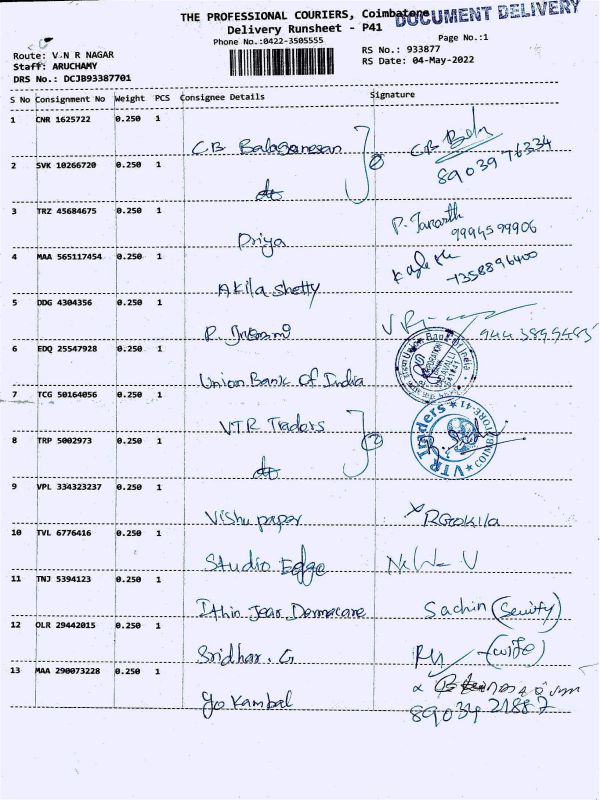 THE PROFESSIONAL COURIERS, Coimbatore
DOCUMENT DELIVERY
Delivery Runsheet - P41
Phone No.:0422-3505555
Page No.:1
Route: V N R NAGAR
RS No.: 933877
Staff: ARUCHAMY
RS Date: 04-May-2022
DRS No.: DCJB93387701
S No Consignment No Weight PCS Consignee Details Signature
1 CNR 1625722 0.250 1
C.B Balaganesan
CB
89039 76334
2 SVK 10266720 0.250 1
do
3 TRZ 45684675 0.250 1
Priya
P.
9994599906
4 MAA 565117454 0.250 1
Akila shetty
7358896400
5 DDG 4304356 0.250 1
R.
6 EDQ 25547928 0.250 1
Union Bank Of India
Union Bank Of India
7 TCG 50164056 0.250 1
VTR Traders
VTR Traders COIMBATORE-41
8 TRP 5002973 0.250 1
do
9 VPL 334323237 0.250 1
Vishu paper
RGokila
10 TVL 6776416 0.250 1
Studio Edge
11 TNJ 5394123 0.250 1
Sachin
12 OLR 29442015 0.250 1
Sridhar. G
(wife)
13 MAA 290073228 0.250 1
89034 21887